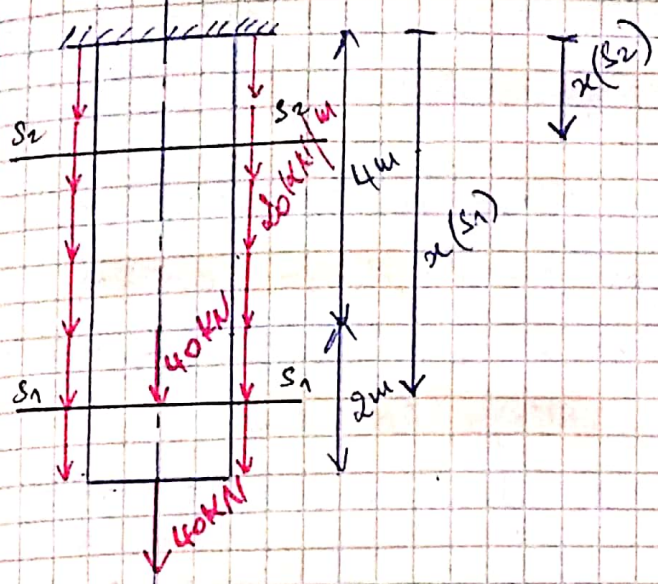 x(S2)
S2
S2
20KN/m
4m
x(S1)
40KN
S1
S1
2m
40KN